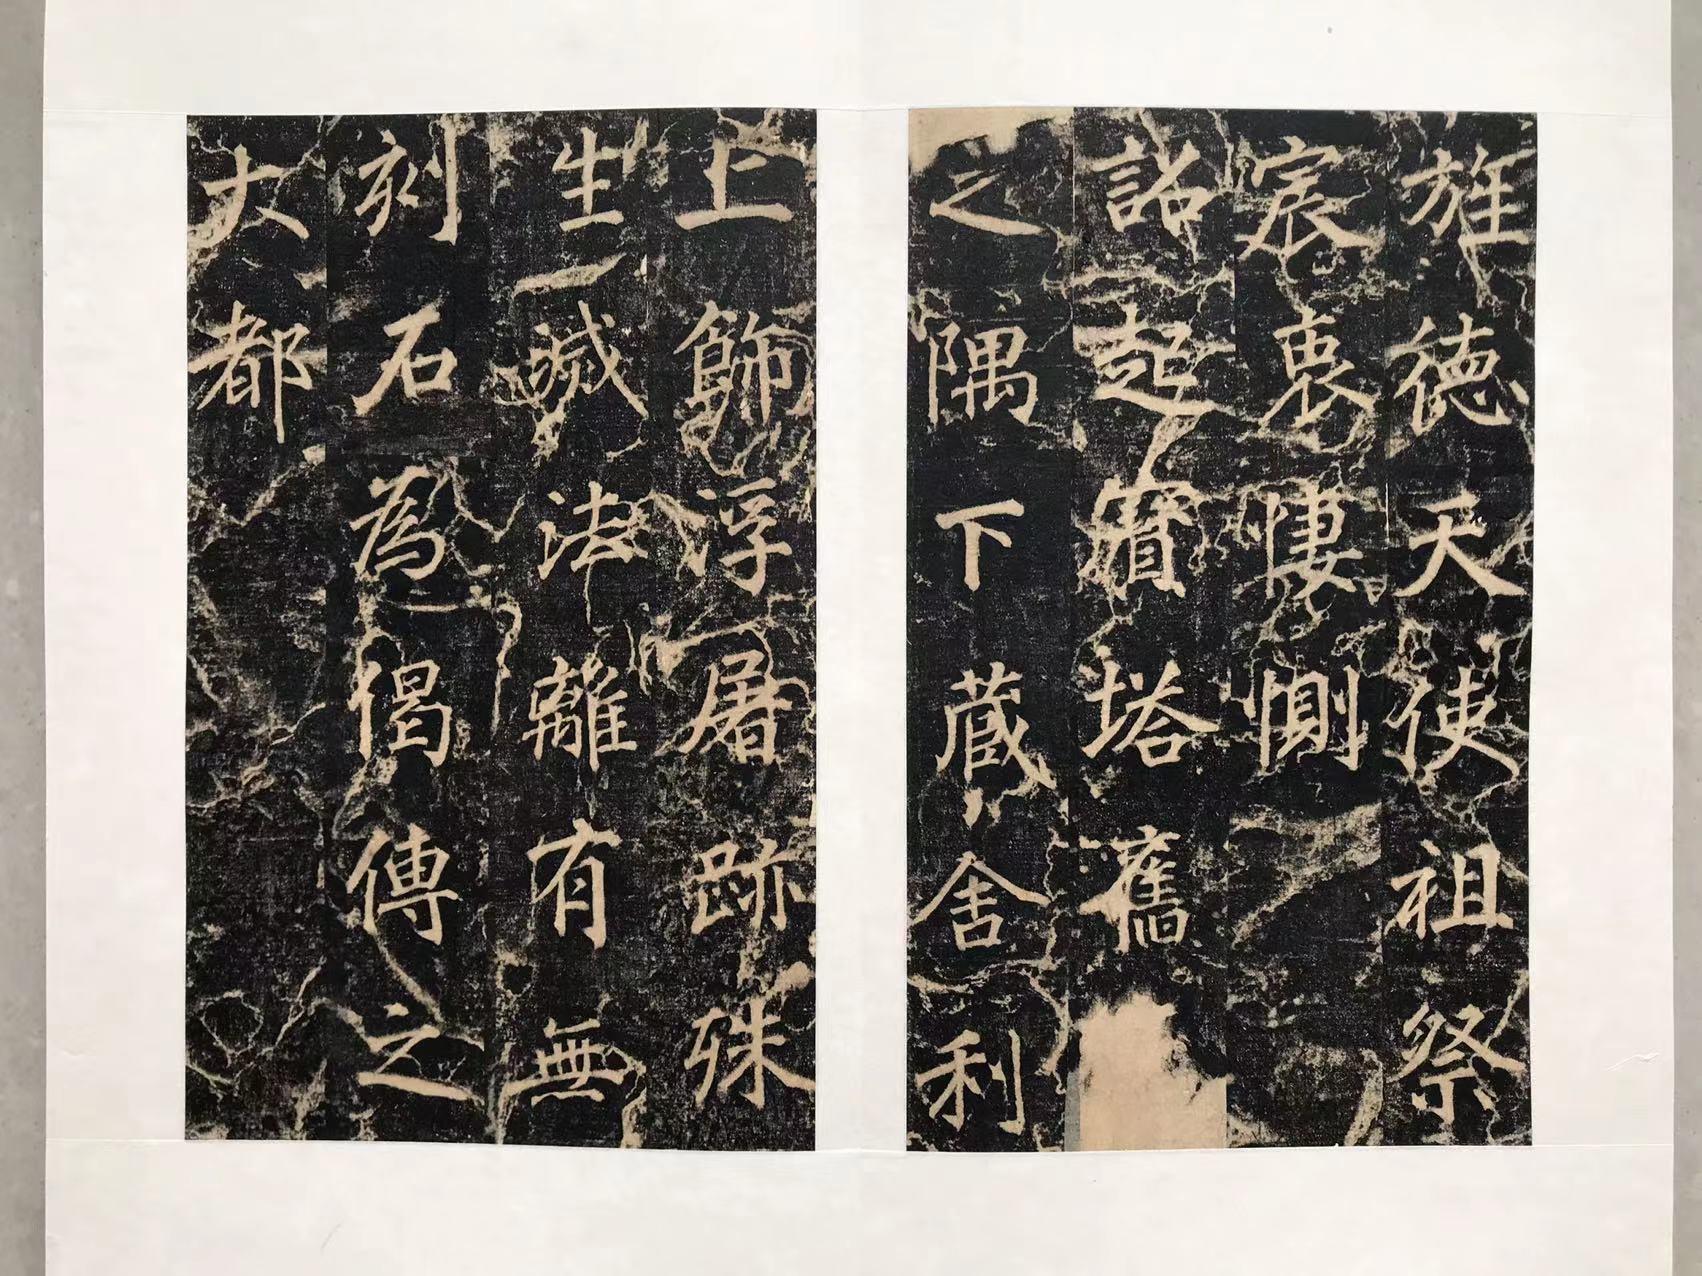 旌德天使祖祭
宸衷悽惻
詔起寳塔舊
之隅下蔵舍利
上飾浮屠跡殊
生滅法離有無
刻石為偈傳之
大都